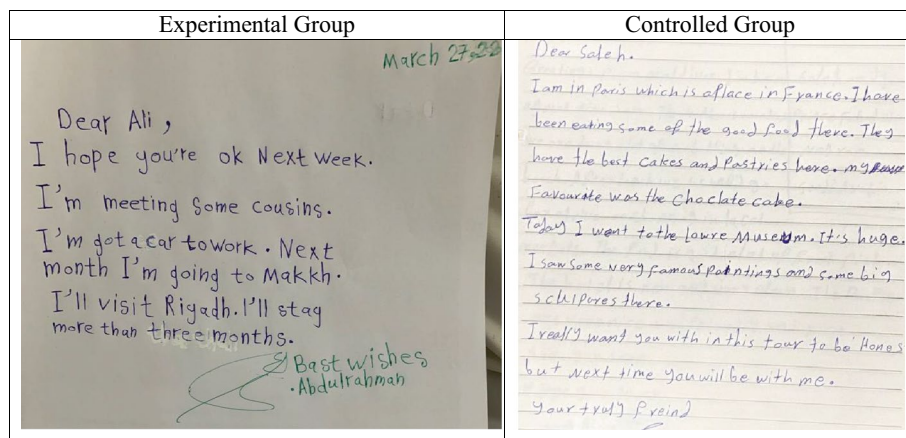 Experimental Group
Controlled Group
March 27,22
Dear Ali ,
I hope you're ok Next week.
I'm meeting some cousins.
I'm got a car to work . Next
month I'm going to Makkh.
I'll visit Riyadh. I'll stag
more than three months.
Bast wishes
. Abdulrahman
Dear Saleh.
I am in Paris which is a place in France. I have
been eating some of the good food there. They
have the best cakes and Pastries here. my
Favourate was the Choclate cake.
Today I went to the Lowre Museum. It's huge.
I saw some very famous paintings and some big
schlpores there.
I really want you with in this tour to be Hones
but Next time you will be with me.
your truly freind